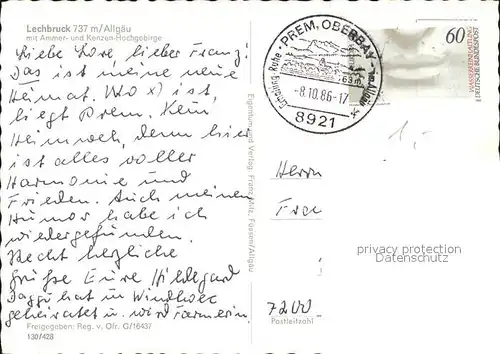 Lechbruck 737 m/Allgäu
mit Ammer- und Kenzen-Hochgebirge
Liebe Lore lieber Franz!
Das ist meine neue
Heimat. Wo x) ist,
liegt Prem. Kein
Heimweh, denn hier
ist alles voller
Harmonie und
Frieden. Auch meinen
Humor habe ich
wiedergefunden.
Recht herzliche
Grüße Eure Hildegard
hat in Windhoek
geheiratet u. wird Farmerin.
Freigegeben: Reg. v. Ofr. G/1643/
130/428
Eigentum und Verlag: Franz Milz, Füssen/Allgäu
PREM, OBERBAY
Erholung Ruhe
im Allgäu
769 m
-8.10.86-17
8921
60
DEUTSCHE BUNDESPOST
1,-
Herrn
7200
Postleitzahl
privacy protection
Datenschutz